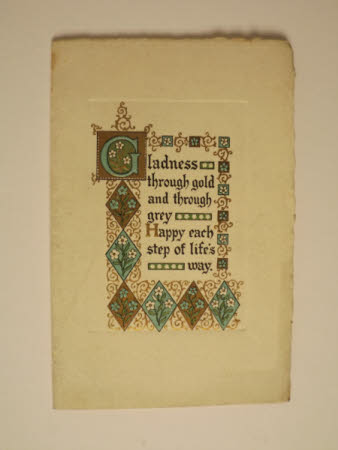 Gladness
through gold
and through
grey
Happy each
step of life's
way.